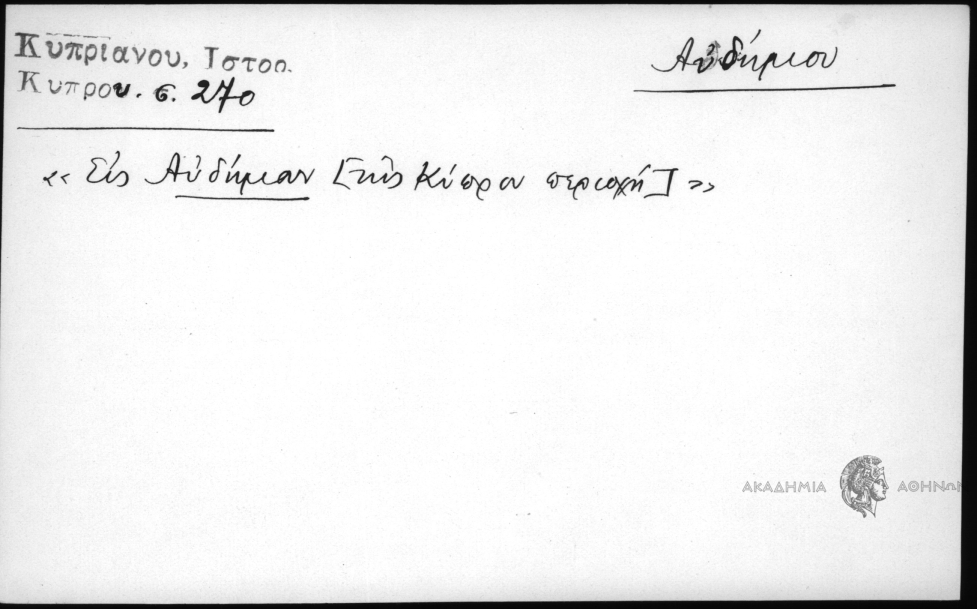 Κυπριανου, Ιστορ.
Κυπρου. σ. 270
Αὐδήμου
« Εἰς Αὐδήμαν [τῆς Κύπρου περιοχή] »
ΑΚΑΔΗΜΙΑ ΑΘΗΝΩΝ